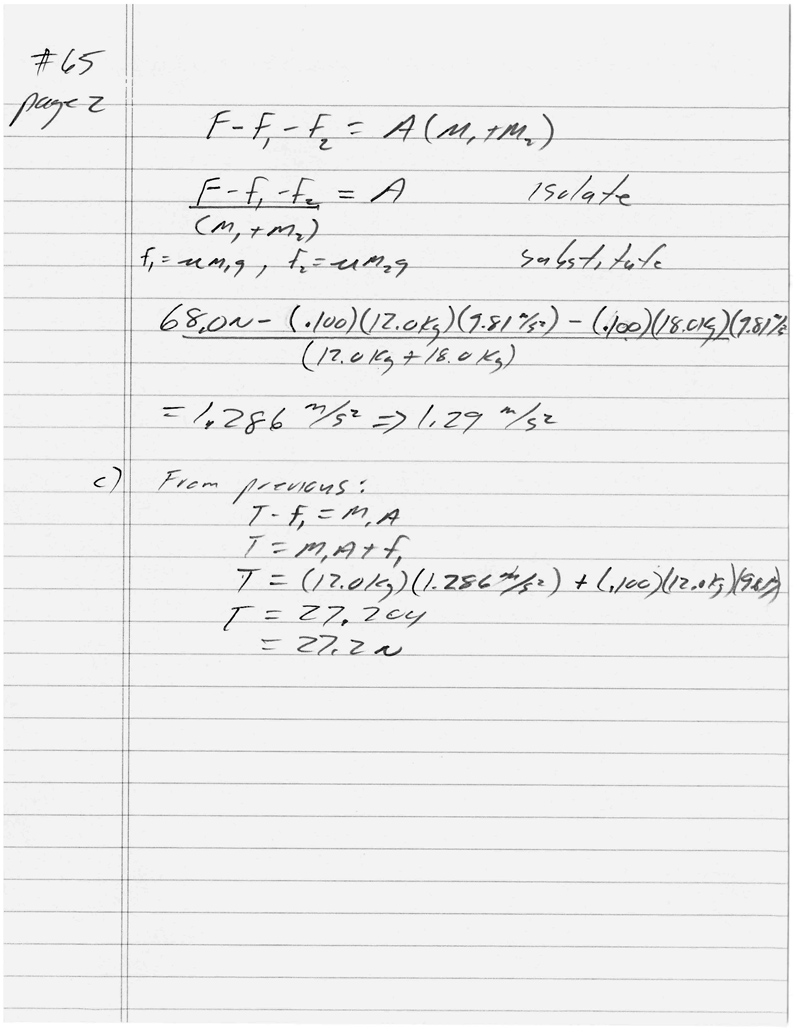 #65
page 2
F - f₁ - f₂ = A(M₁ + M₂)
F - f₁ - f₂ = A isolate
(M₁ + M₂)
f₁ = uM₁g, f₂ = uM₂g substitute
68.0N - (.100)(12.0kg)(9.81 m/s²) - (.100)(18.0kg)(9.81 m/s
(12.0kg + 18.0kg)
= 1.286 m/s² => 1.29 m/s²
c) From previous:
T - f₁ = M₁A
T = M₁A + f₁
T = (12.0kg)(1.286 m/s²) + (.100)(12.0kg)(9.81)
T = 27.204
= 27.2N